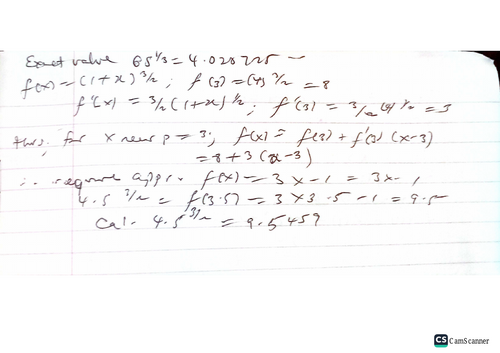 Exact value 65^1/3 = 4.020725 —
f(x) = (1+x)^3/2 ; f(3) = (4)^3/2 = 8
f'(x) = 3/2 (1+x)^1/2 ; f'(3) = 3/2 (4)^1/2 = 3
thus, for x near p = 3, f(x) = f(3) + f'(3) (x-3)
= 8 + 3 (x-3)
∴ require appr. f(x) = 3x-1 = 3x-1
4.5^3/2 = f(3.5) = 3 x 3.5 - 1 = 9.5
Cal. 4.5^3/2 = 9.5459
CS CamScanner